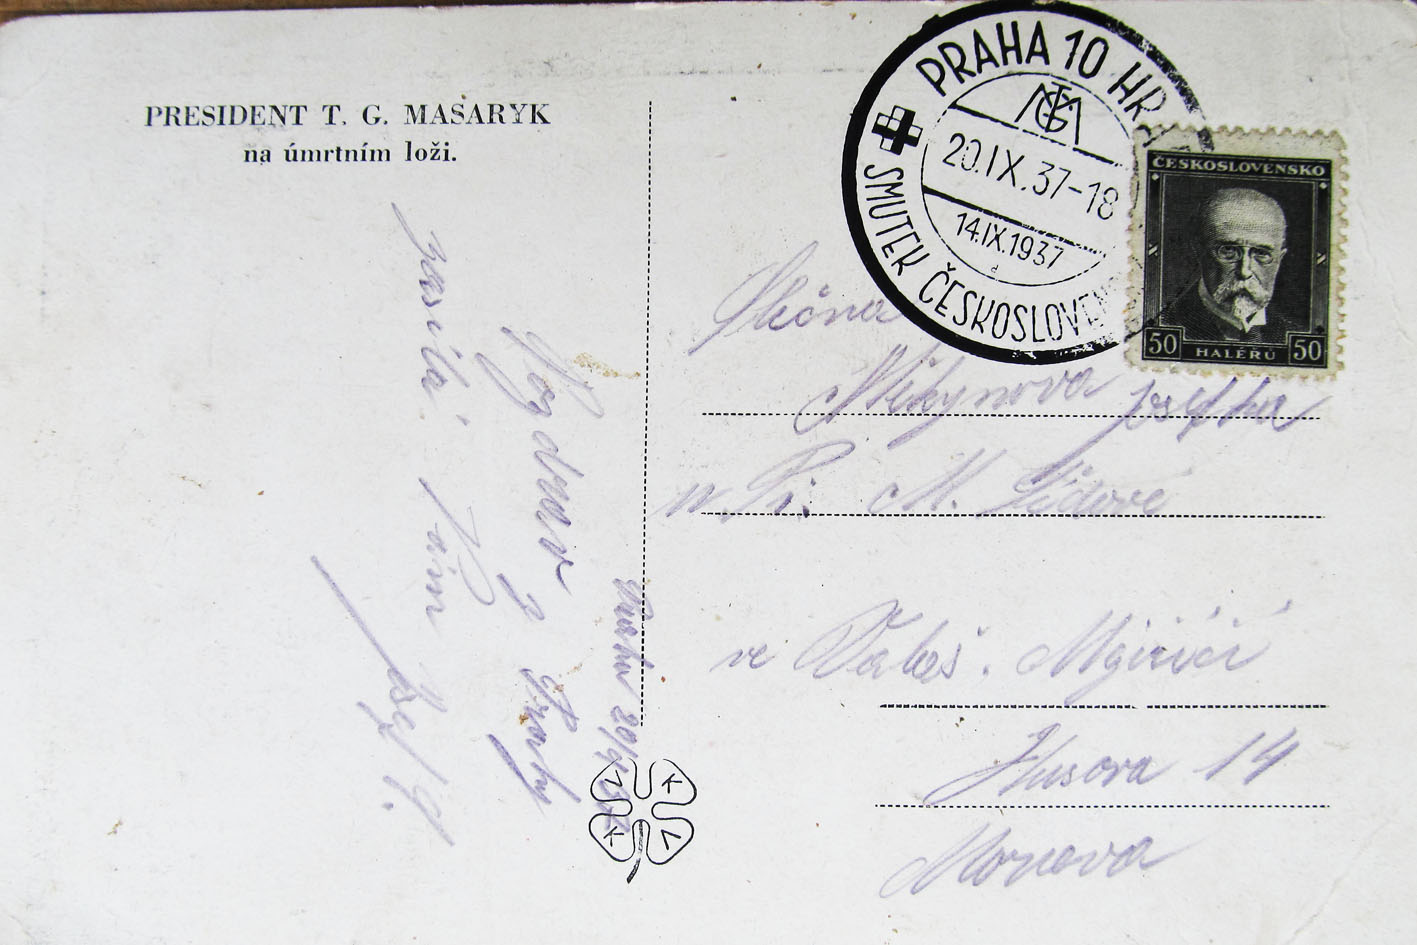 PRESIDENT T. G. MASARYK
na úmrtním loži.
PRAHA 10 HR
TGM
20.IX.37-18
14.IX.1937
SMUTEK ČESKOSLOVEN
ČESKOSLOVENSKO
50 HALÉRŮ 50
Pozdrav z Prahy
zasílá Vám
Slečna
u. Pí. M.
ve Valaš. Meziříčí
Husova 14
Morava
K
V
K
V